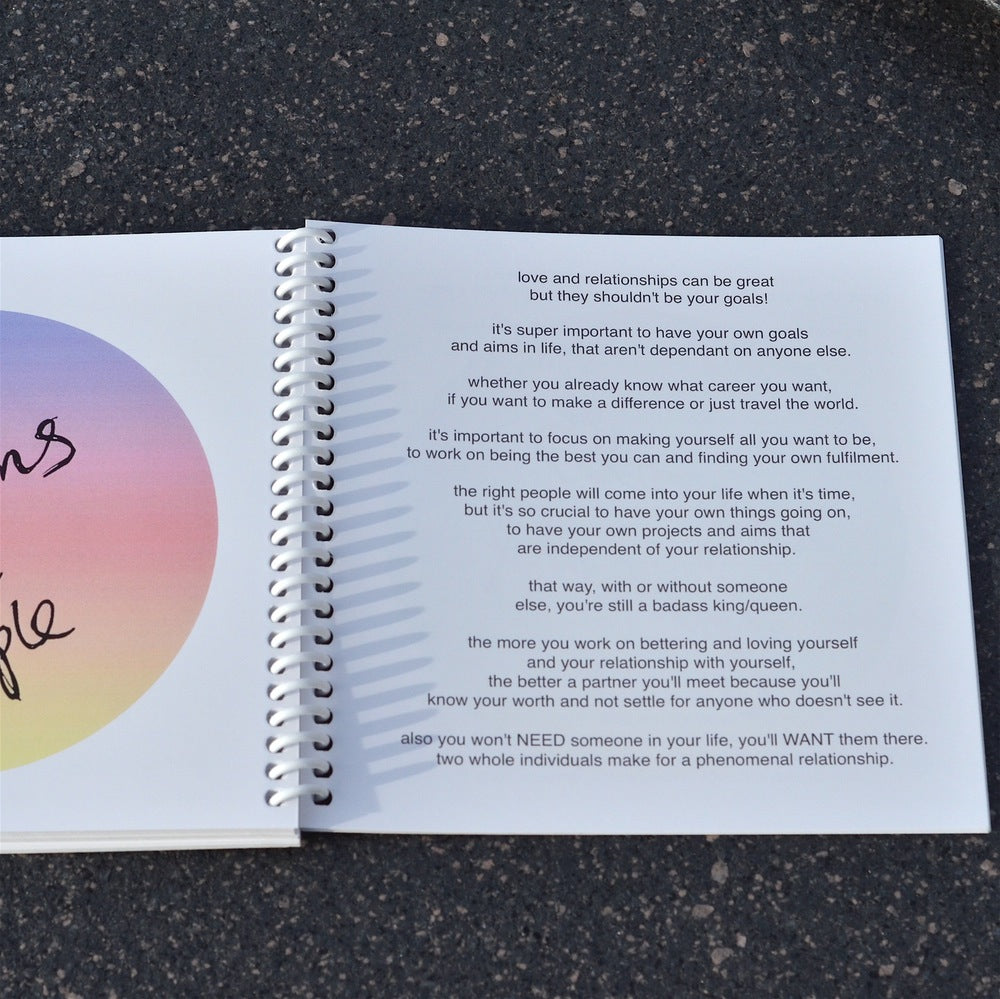 love and relationships can be great
but they shouldn't be your goals!
it's super important to have your own goals
and aims in life, that aren't dependant on anyone else.
whether you already know what career you want,
if you want to make a difference or just travel the world.
it's important to focus on making yourself all you want to be,
to work on being the best you can and finding your own fulfilment.
the right people will come into your life when it's time,
but it's so crucial to have your own things going on,
to have your own projects and aims that
are independent of your relationship.
that way, with or without someone
else, you're still a badass king/queen.
the more you work on bettering and loving yourself
and your relationship with yourself,
the better a partner you'll meet because you'll
know your worth and not settle for anyone who doesn't see it.
also you won't NEED someone in your life, you'll WANT them there.
two whole individuals make for a phenomenal relationship.